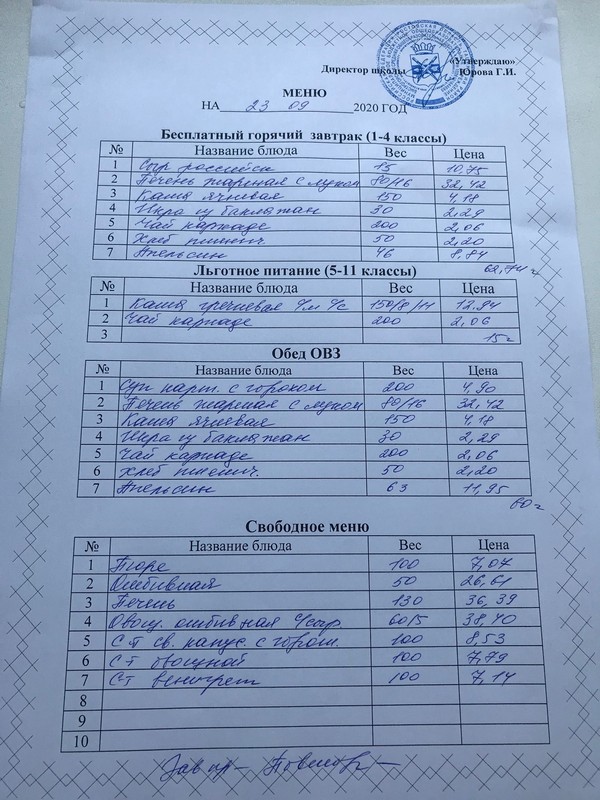 «Утверждаю»
Директор школы Юрова Г.И.
МЕНЮ
НА 23 09 2020 ГОД
Бесплатный горячий завтрак (1-4 классы)
№ Название блюда Вес Цена
1 Сыр российск 15 10,75
2 Печень жареная с луком 80/16 32,42
3 Каша ячневая 150 4,18
4 Икра из баклажан 30 2,29
5 Чай каркаде 200 2,06
6 Хлеб пшенич 50 2,20
7 Апельсин 46 8,84
62,74 г
Льготное питание (5-11 классы)
№ Название блюда Вес Цена
1 Каша гречневая 150/8/14 12.94
2 Чай каркаде 200 2,06
3
15 г
Обед ОВЗ
№ Название блюда Вес Цена
1 Суп карт. с горохом 200 4,90
2 Печень жареная с луком 80/16 32,42
3 Каша ячневая 150 4,18
4 Икра из баклажан 30 2,29
5 Чай каркаде 200 2,06
6 Хлеб пшенич. 50 2,20
7 Апельсин 63 11,95
60 г
Свободное меню
№ Название блюда Вес Цена
1 Пюре 100 7,07
2 Отбивная 50 26,61
3 Печень 130 36,39
4 отбивная с/сыр 60/5 38,40
5 С-т св. капус. с горош. 100 8,53
6 С-т овощной 100 7,79
7 С-т винегрет 100 7,14
8
9
10
Зав пр–